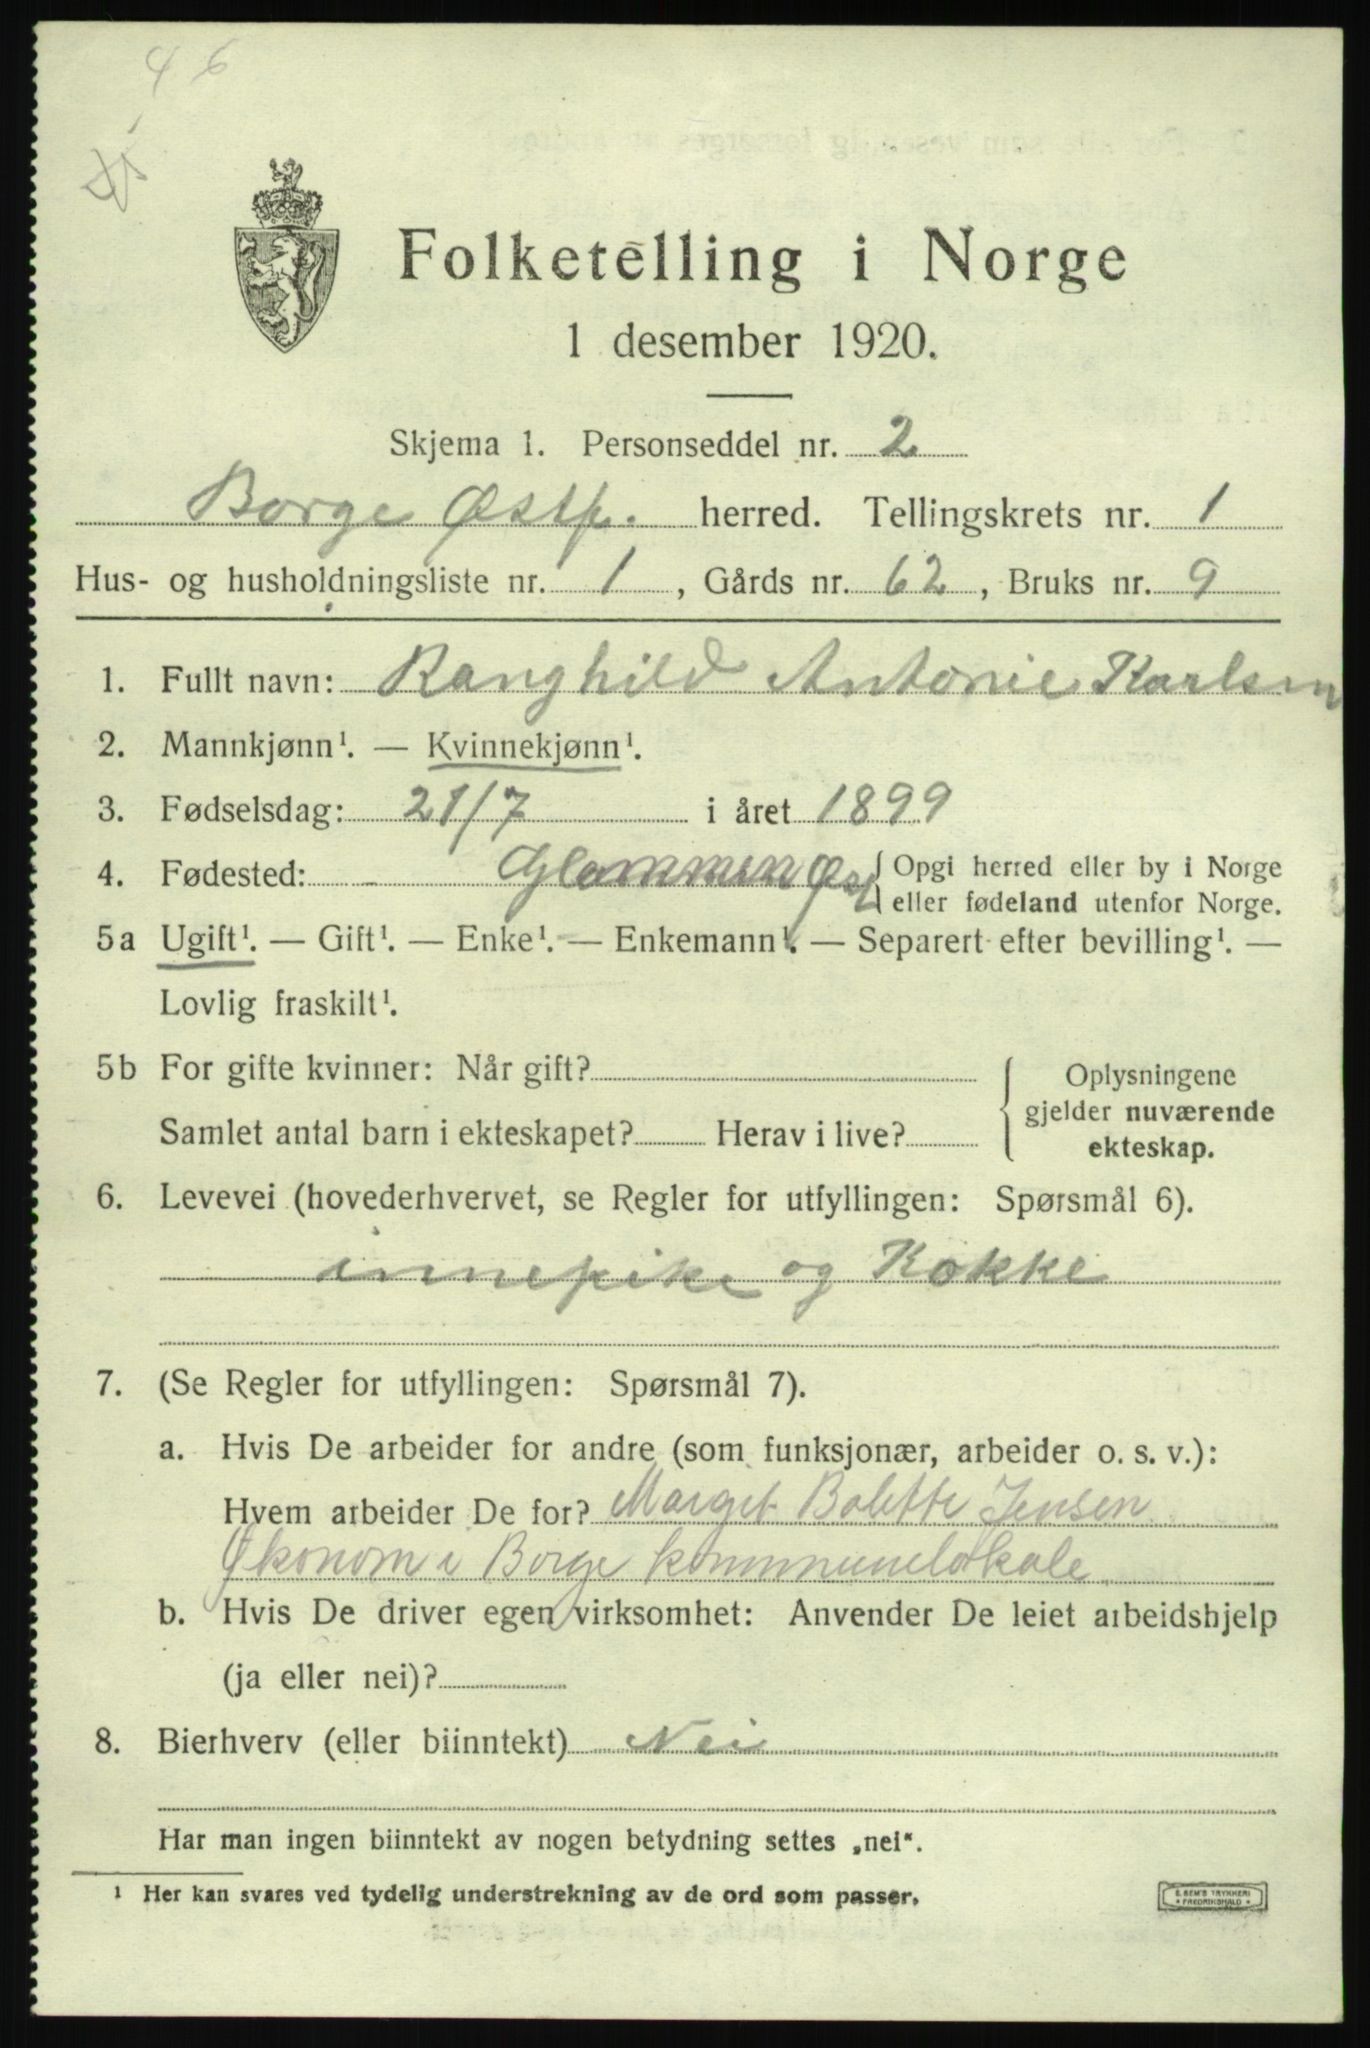 46
Folketelling i Norge
1 desember 1920.
Skjema 1. Personseddel nr. 2
Borge Østf. herred. Tellingskrets nr. 1
Hus- og husholdningsliste nr. 1, Gårds nr. 62, Bruks nr. 9
1. Fullt navn: Ranghild Antonie Karlsen
2. Mannkjønn¹. — Kvinnekjønn¹.
3. Fødselsdag: 21/7 i året 1899
4. Fødested: Glemmen Østf { Opgi herred eller by i Norge
eller fødeland utenfor Norge.
5a Ugift¹. — Gift¹. — Enke¹. — Enkemann¹. — Separert efter bevilling¹. —
Lovlig fraskilt¹.
5b For gifte kvinner: Når gift?
Samlet antal barn i ekteskapet? Herav i live?
{ Oplysningene
gjelder nuværende
ekteskap.
6. Levevei (hovederhvervet, se Regler for utfyllingen: Spørsmål 6).
innepike og Kokke
7. (Se Regler for utfyllingen: Spørsmål 7).
a. Hvis De arbeider for andre (som funksjonær, arbeider o. s. v.):
Hvem arbeider De for? Marget Bolette Jensen
Økonom i Borge kommunelokale
b. Hvis De driver egen virksomhet: Anvender De leiet arbeidshjelp
(ja eller nei)?
8. Bierhverv (eller biinntekt) Nei
Har man ingen biinntekt av nogen betydning settes „nei“.
¹ Her kan svares ved tydelig understrekning av de ord som passer.
E. SEM'S TRYKKERI
• FREDRIKSHALD •